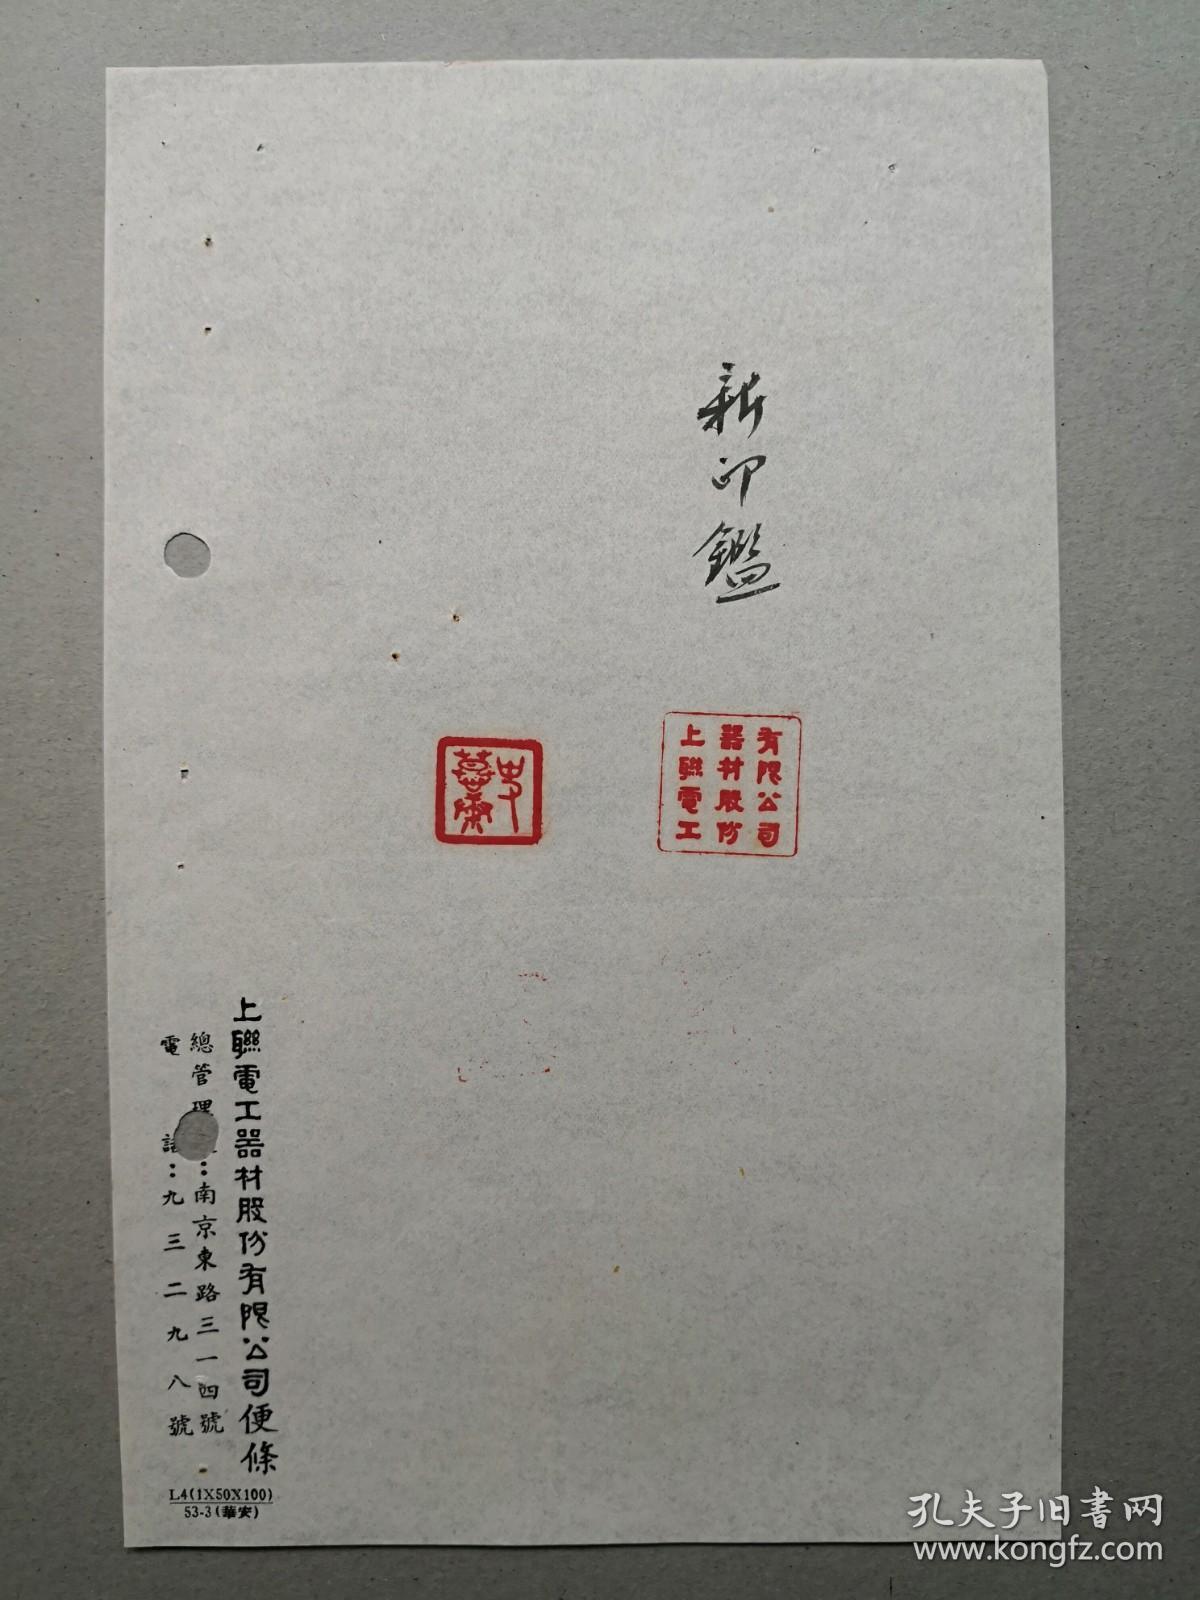 新印鑑
上聯電工
器材股份
有限公司
史
慕
上聯電工器材股份有限公司便條
總管理：南京東路三一四號
電話：九三二九八號
L4(1X50X100)
53-3(華安)
孔夫子旧书网
www.kongfz.com